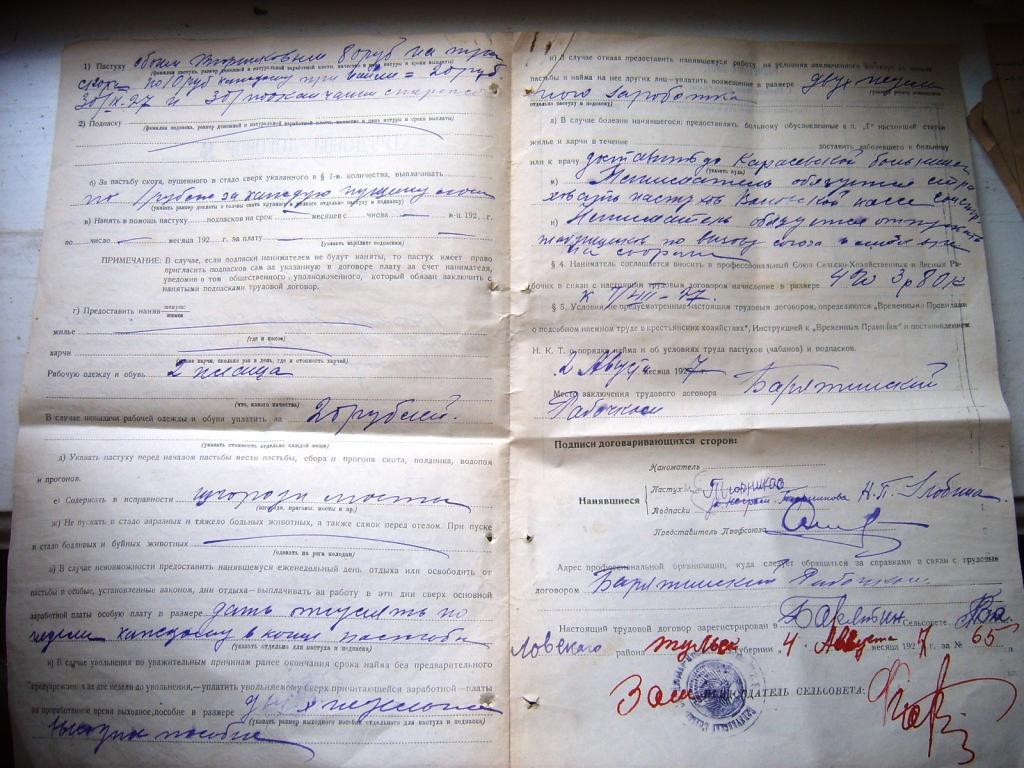 1) Пастуху обоим 80 руб на
(фамилия пастуха, размер денежной и натуральной заработной платы, качество и дни натуры и сроки выплаты)
по 10 руб каждому при найме = 20 руб
30/IX-27 и 30/
2) Подпаску
(фамилия подпаска, размер денежной и натуральной заработной платы, качество и дни натуры и сроки выплаты)
б) За пастьбу скота, пущенного в стадо сверх указанного в § 1-м. количества, выплачивать
по 1 рублю за каждую
в) Нанять в помощь пастуху подпасков на срок — месяцев с числа — м-ц 192 г.
по — число — месяца 192 г. за плату —
(указать заработок подпасков)
ПРИМЕЧАНИЕ: В случае, если подпаски нанимателем не будут наняты, то пастух имеет право
пригласить подпасков сам за указанную в договоре плату за счет нанимателя,
уведомив о том общественного уполномоченного, который обязан заключить с
нанятыми подпасками трудовой договор.
г) Предоставить наняв
жилье
(где и какое)
харчи
(какие харчи, сколько раз в день, где и стоимость харчей)
Рабочую одежду и обувь 2 плаща
(что, какого качества)
В случае невыдачи рабочей одежды и обуви уплатить за 20 рублей.
(указать стоимость отдельно каждой вещи)
д) Указать пастуху перед началом пастьбы место пастьбы, сбора и прогона скота, полдника, водопоя
и прогонов.
е) Содержать в исправности изгороди мосты
(изгороди, прогоны, мосты и пр.)
ж) Не пускать в стадо заразных и тяжело больных животных, а также самок перед отелом. При пуске
в стадо бодливых и буйных животных
(одевать на рога колодки)
з) В случае невозможности предоставить нанявшемуся еженедельный день отдыха или освободить от
пастьбы в особые, установленные законом, дни отдыха—выплачивать за работу в эти дни сверх основной
заработной платы особую плату в размере дать отпуск по
недели каждому в конце пастьбы
(указать отдельно для пастуха и подпаска)
и) В случае увольнения по уважительным причинам ранее окончания срока найма без предварительного
предупреждения за две недели до увольнения,—уплатить увольняемому сверх причитающейся заработной платы
за проработанное время выходное пособие в размере двух недельного
(указать размер выходного пособия отдельного для пастуха и подпаска)
пособие
к) В случае отказа предоставить нанявшемуся работу на условиях заключенного
пастьбы и найма на нее других лиц—уплатить возмещение в размере двух недель
ного заработка
отдельно пастуху и подпаску)
л) В случае болезни нанявшегося: предоставлять больному обусловленные в п. „Г" настоящей статьи
жилье и харчи в течение доставить заболевшего к больному
или к врачу доставить до Карасевской больницы
(указать куда)
м) Наниматель обязуется стра
ховать пастухов в кассе соцстр
н) Наниматель обязуется отпускать
по вызову союза
§ 4. Наниматель соглашается вносить в профессиональный Союз Сельско-Хозяйственных и Лесных Ра-
бочих в связи с настоящим трудовым договором начисление в размере 4% 3 р 80 к
к 1/VIII-27.
§ 5. Условия, не предусмотренные настоящим трудовым договором, определяются „Временными Правилами
о подсобном наемном труде в крестьянских хозяйствах", Инструкцией к „Временным Правилам" и постановлением
Н. К. Т. о порядке найма и об условиях труда пастухов (чабанов) и подпасков.
2 Август месяца 1927 г.
Место заключения трудового договора Барятинский
Рабочком
Подписи договаривающихся сторон:
Наниматель
Нанявшиеся
Пастух
Подпаски
Представитель Профсоюза
Адрес профессиональной организации, куда следует обращаться за справками в связи с трудовым
договором Барятинский Рабочком
Настоящий трудовой договор зарегистрирован в Барятин сельсовете
ловского района Тульск губернии „4" Августа месяца 1927 г. за № 65
Зам ПРЕДСЕДАТЕЛЬ СЕЛЬСОВЕТА: